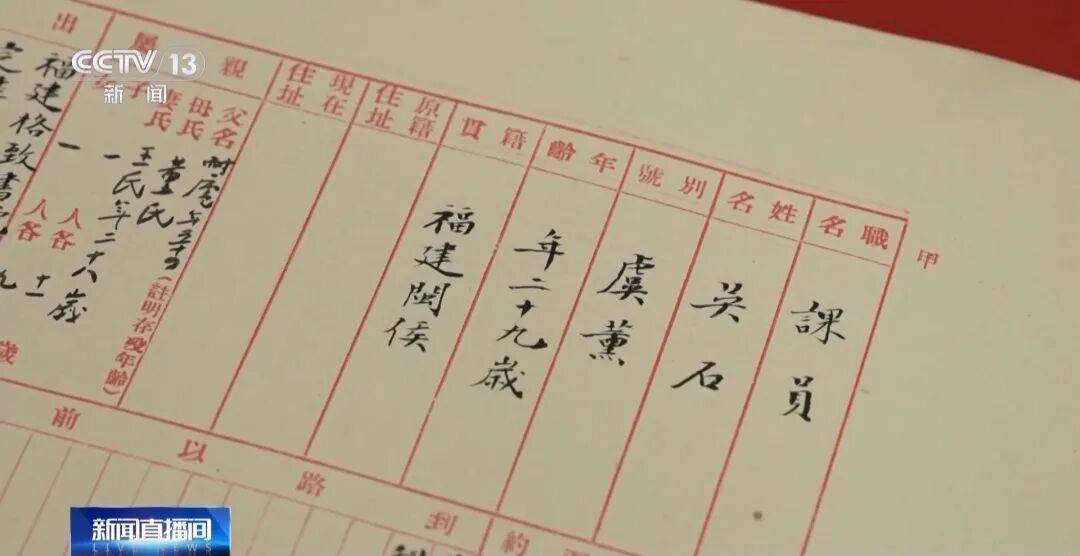 CCTV 13
新闻
甲
職名
課員
姓名
吴石
別號
虞薰
年齡
年二十九歲
籍貫
福建閩侯
原籍住址
現在住址
親屬
父名
母氏 董氏
妻氏 王氏年二十八歲
子 一人
女 一人
(註明存歿年齡)
各
各
十一
歲
出
福建格致書
到
路
以
前
約
新闻直播间
LIVE NEWS